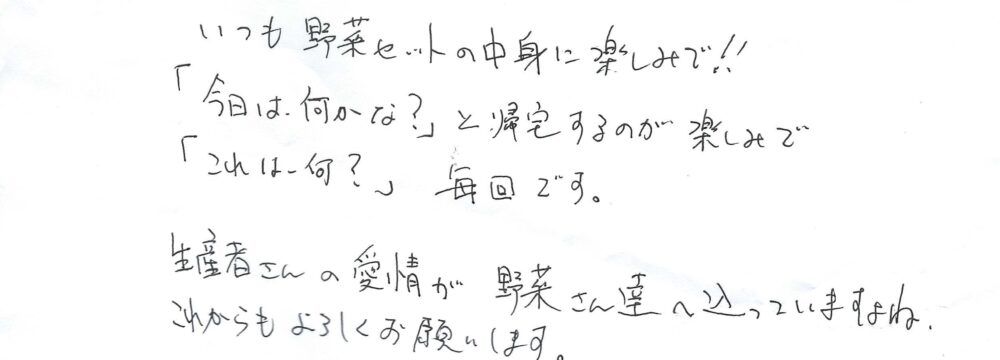 いつも野菜セットの中身に楽しみで!!
「今日は何かな?」と帰宅するのが楽しみで
「これは何?」毎回です。
生産者さんの愛情が野菜さん達へ込っていますよね.
これからもよろしくお願いします。